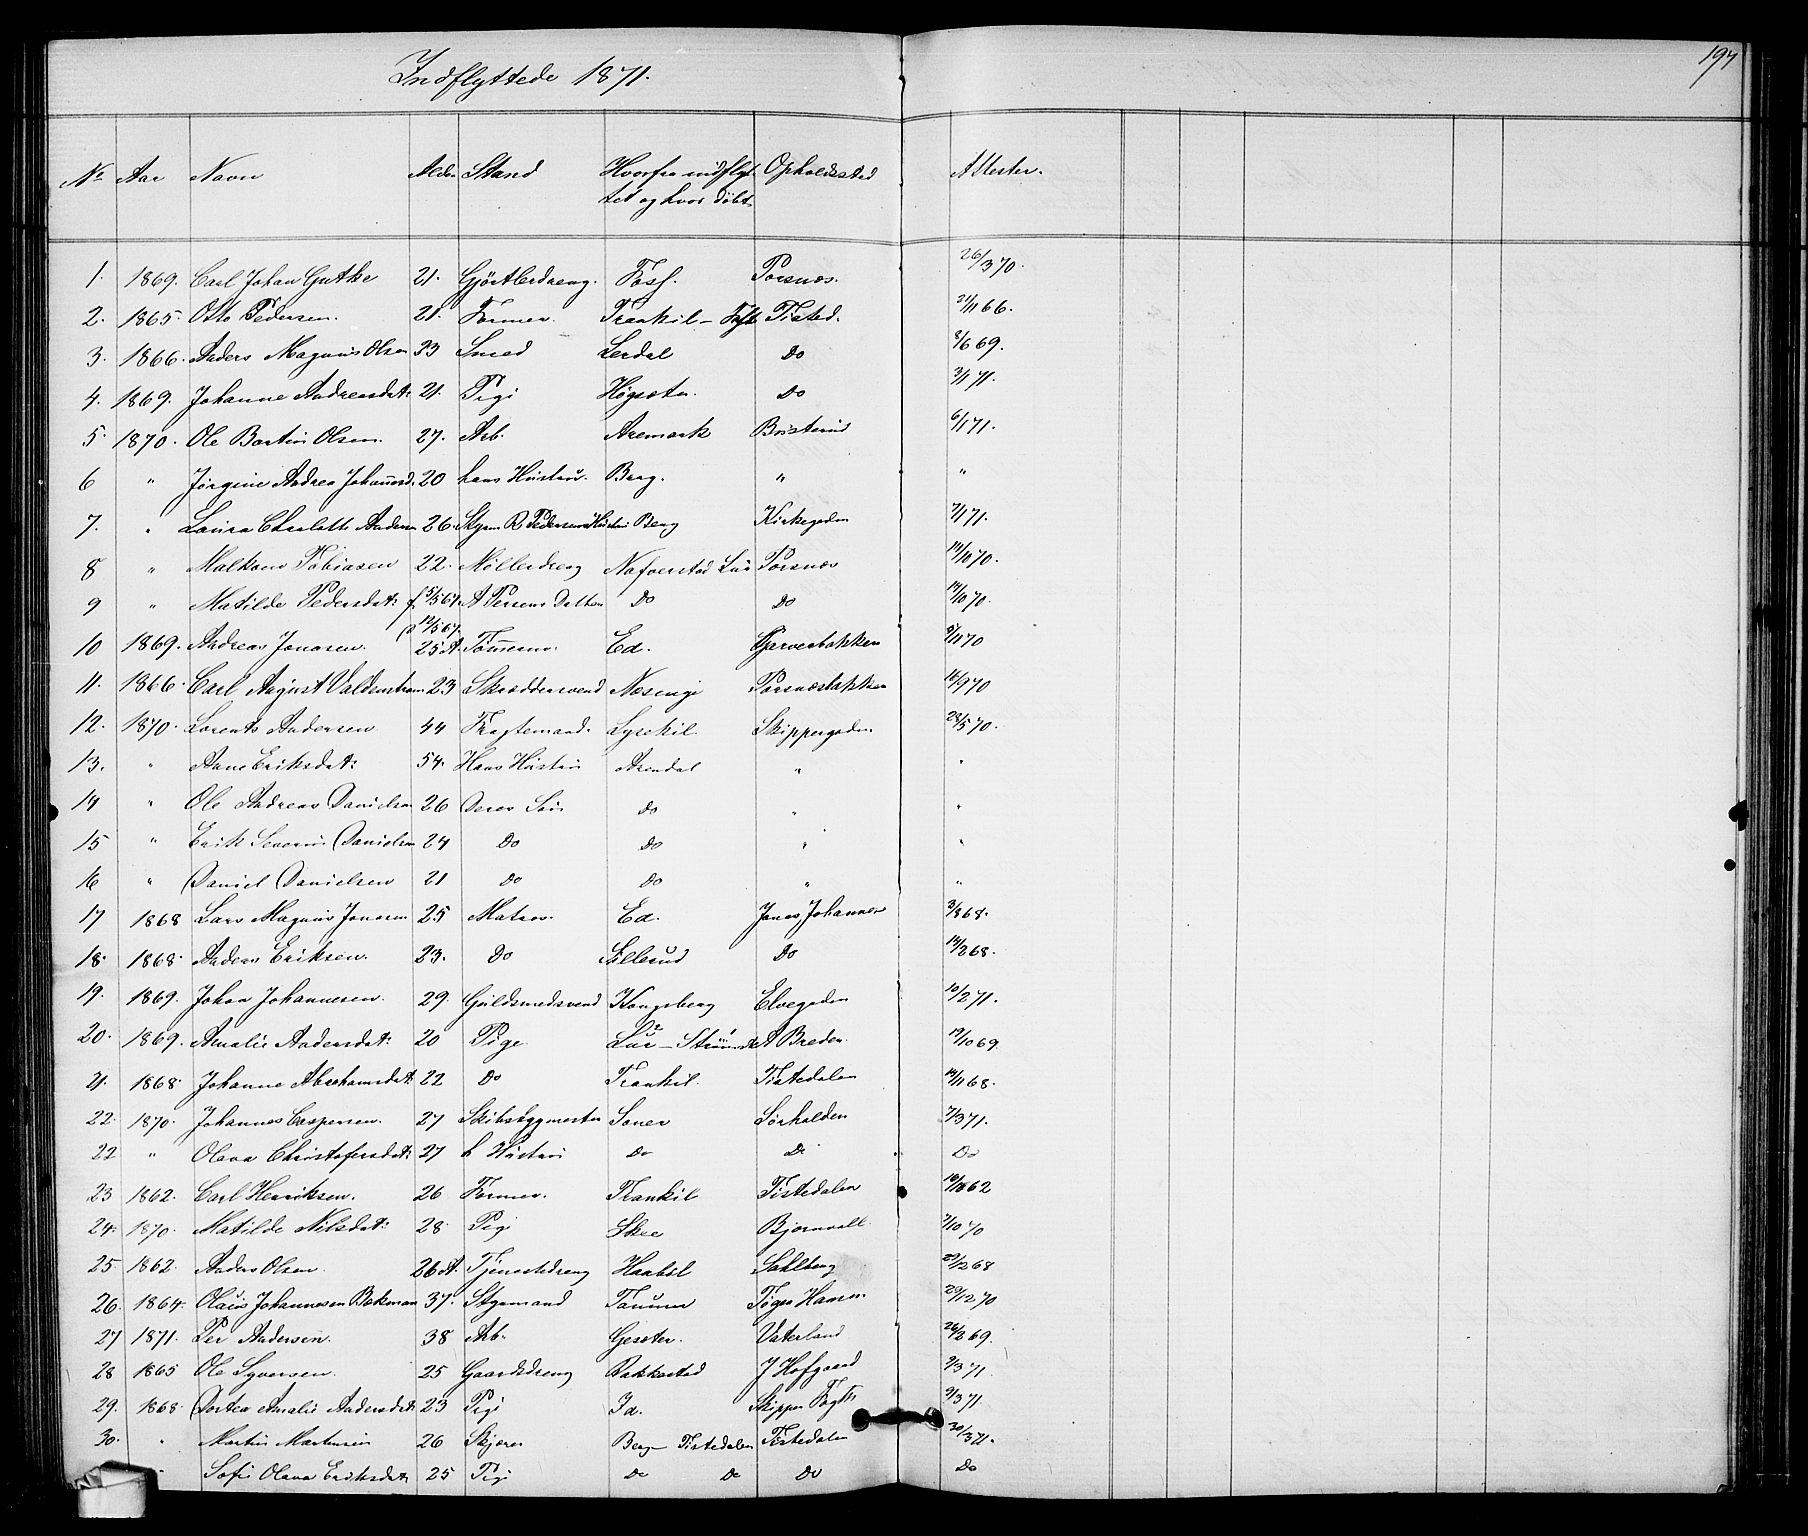 197
Indflyttede 1871.
No Aar Navn Alder Stand Hvorfra indflyt Opholdssted Attester.
tet og hvor døbt
1. 1869. Carl Johan Gutke 21. Gjørtlerdreng. Fosf. Porsnæs. 26/3 70.
2. 1865. Otto Pedersen. 21. Former. Trankil - Tisted. 21/11 66.
3. 1866. Anders Magnus Olsen 33 Smed Lerdal Do 8/6 69.
4. 1869. Johanne Andreasdat: 21. Pige Høgsæter. Do 3/1 71.
5. 1870. Ole Bertin Olsen. 27. Arb. Aremark 6/1 71.
6 " Jørgine Andrea Johannsd. 20 hans Hustru. Berg. " "
7. " Laura Charlotte Anders 26. Styrm R Pedersens Hustru Berg Kirkegaden 7/1 71.
8 " Malkom Tobiasen 22. Møllerdreng Nafverstad Lur Porsnæs 14/11 70.
9 " Matilde Pedersdat: f. 5/5 67. A Persens Datter Do Do 14/10 70.
d 12/5 67.
10 1869. Andreas Jonasen. 25 A. Tømmerm. Ed. Garverbakken 9/11 70
11. 1866. Carl August Valdenstrøm 23 Skræddersvend Næsinge Porsnæsbakken 12/9 70
12. 1870. Lorents Andersen 44 Fragtemand Lysekil. Skippergaden 28/5 70.
13. " Anne Eriksdat: 54. Hans Hustru Arendal " "
14 " Ole Andreas Danielsen 26 Deres Søn Do " "
15 " Erik Severin Danielsen 24 Do Do " "
16 " Daniel Danielsen 21 Do Do " "
17 1868 Lars Magnus Jonasen 25 Matros. Ed. Jonas Johannes 3/8 68.
18. 1868. Anders Eriksen. 23. Do Sillerud Do 14/3 68.
19. 1869. Johan Johannesen. 29. Guldsmedsvend Kongsberg Elvegaden 10/2 71.
20. 1869. Amalie Andersdat: 20 Pige Lur - A Breden. 19/10 69.
21. 1868. Johanne Abrahamsdat: 22 Do Trankil. Tistedalen 14/11 68.
22. 1870. Johannes Caspersen. 27 Skibsbygmester Soner Sørhalden 7/3 71.
22 " Olava Christofersdat: 27 h Hustru Do Do Do
23 1862. Carl Henriksen. 26 Former. Trankil Tistedalen 10/11 62
24. 1870. Matilde Nilsdat: 28. Pige Skee Bjørnvall. 7/10 70
25. 1862. Anders Olsen. 26 A. Tjenestedreng Haabøl Sahlberg 22/2 68
26. 1864. Olaus Johannesen Bækman 37. Styrmand Tanum Tøger Hansen 29/12 70
27 1871. Per Andersen. 38 Arb. Gesæter. Vaterland 26/3 69.
28 1865 Ole Syversen. 25 Gaardsdreng Rakkestad J Hofgaard 9/3 71.
29. 1868. Dortea Amalie Andersdat: 23 Pige Id. Skipper 9/3 71.
30. " Martin Martinsen 26 Skjærer Berg - Tistedalen Tistedalen 30/3 71.
" Sofie Olava Eriksdat: 25 Pige Do Do Do Do